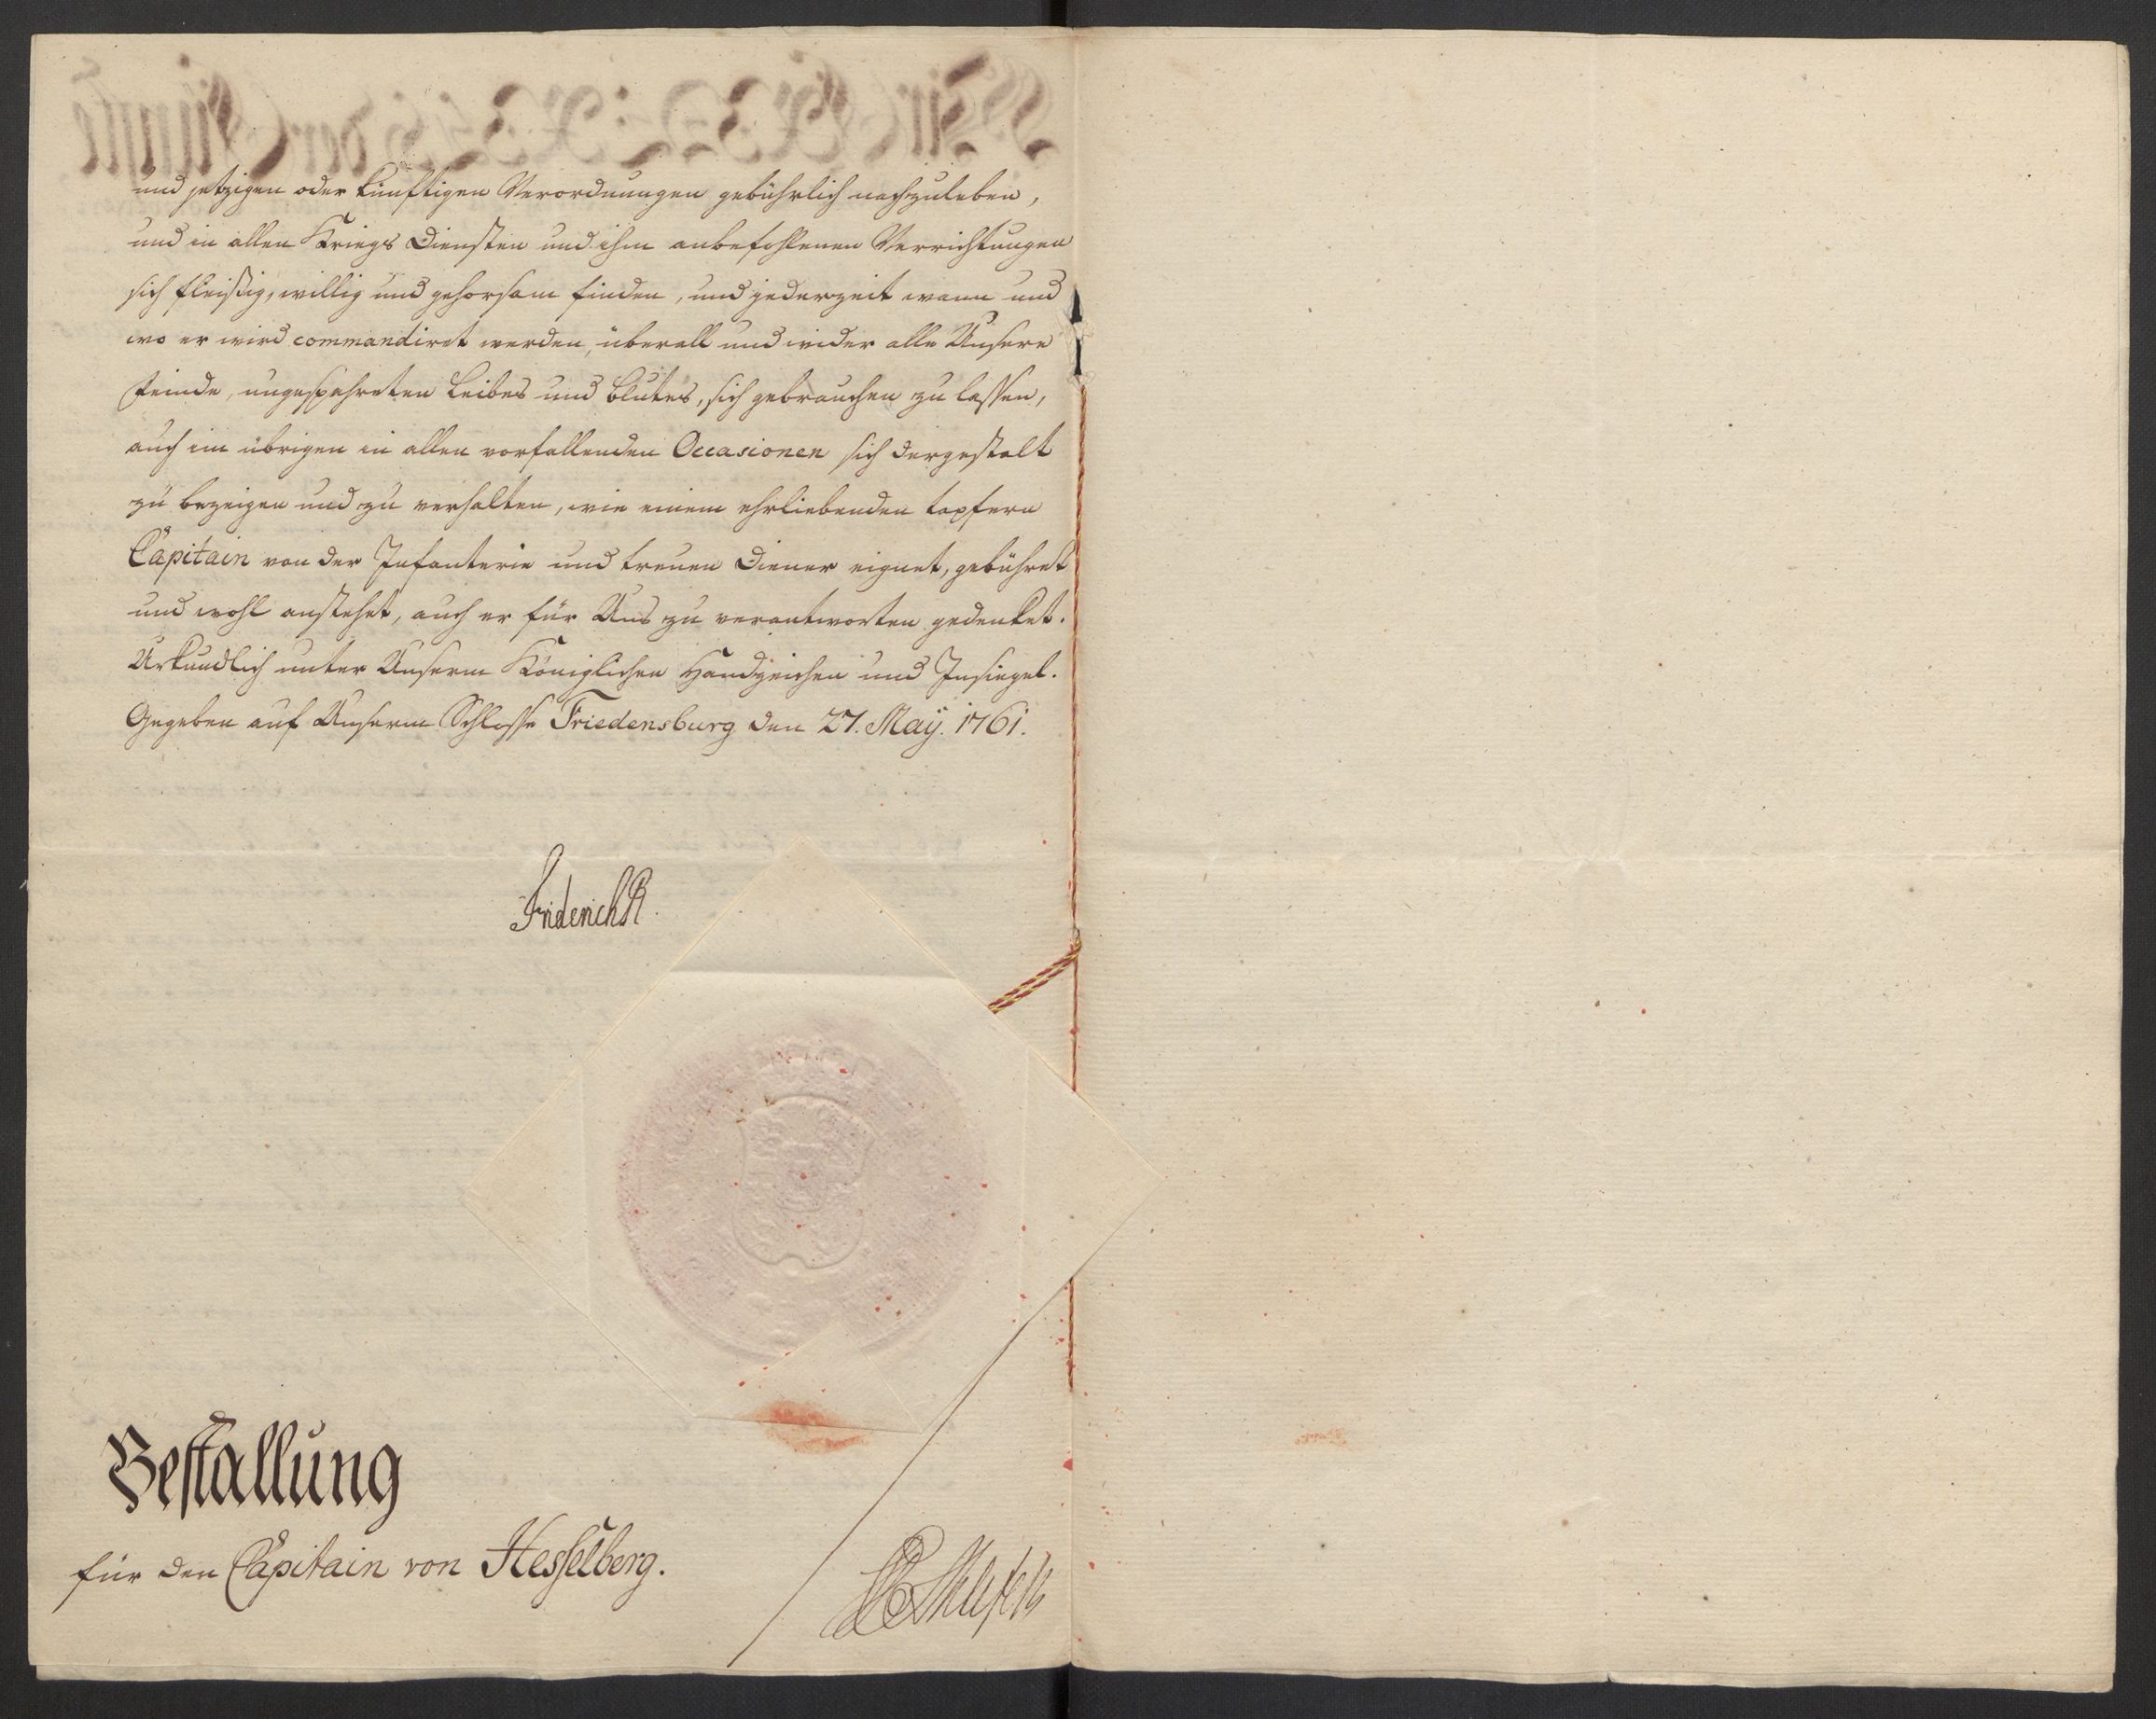 und jetzigen oder künftigen Verordnungen gebührlich nachzuleben,
und in allen Kriegs Diensten und ihm anbefohlenen Verrichtungen
sich fleißig, willig und gehorsam finden, und jederzeit wann und
wo er wird commandiret werden, überall und wider alle Unsere
Feinde, ungespahreten Leibes und Blutes, sich gebrauchen zu lassen,
auch im übrigen in allen vorfallenden Occasionen sich dergestalt
zu bezeigen und zu verhalten, wie einem ehrliebenden tapfern
Capitain von der Infanterie und treuen Diener eignet, gebühret
und wohl anstehet, auch er für Uns zu verantworten gedenket.
Urkundlich unter Unserm Königlichen Handzeichen und Insiegel.
Gegeben auf Unserm Schlosse Friedensburg den 27. Maÿ. 1761.
Friderich R.
Bestallung
für den Capitain von Hesselberg.